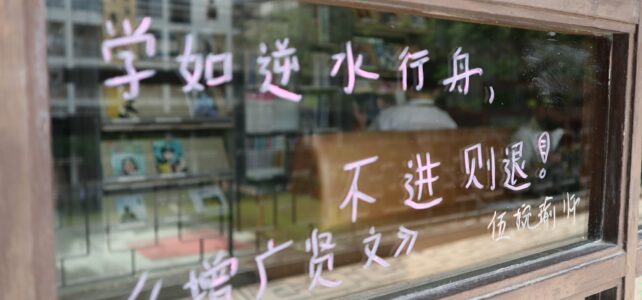 学如逆水行舟,
不进则退!
《增广贤文》
伍琬瑜师